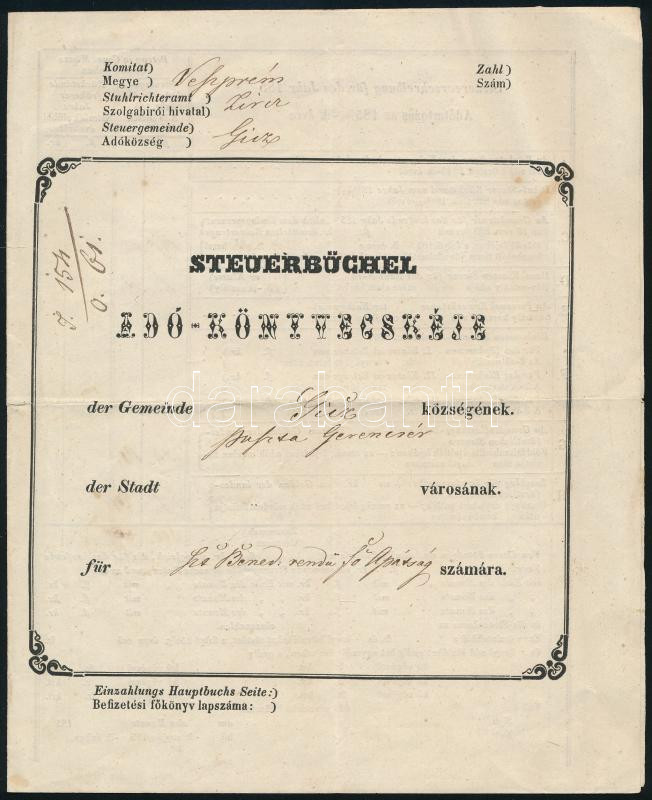 Komitat)
Megye ) Veszprém
Zahl )
Szám)
Stuhlrichteramt )
Szolgabírói hivatal) Zircz
Steuergemeinde)
Adóközség ) Gicz
154
o. 61.
STEUERBÜCHEL
ADÓ-KÖNYVECSKÉJE
der Gemeinde Gicz községének.
puszta Gerencsér
der Stadt városának.
für Szt Bened. rendü fő Apátság számára.
Einzahlungs Hauptbuchs Seite:)
Befizetési főkönyv lapszáma: )
darabanth